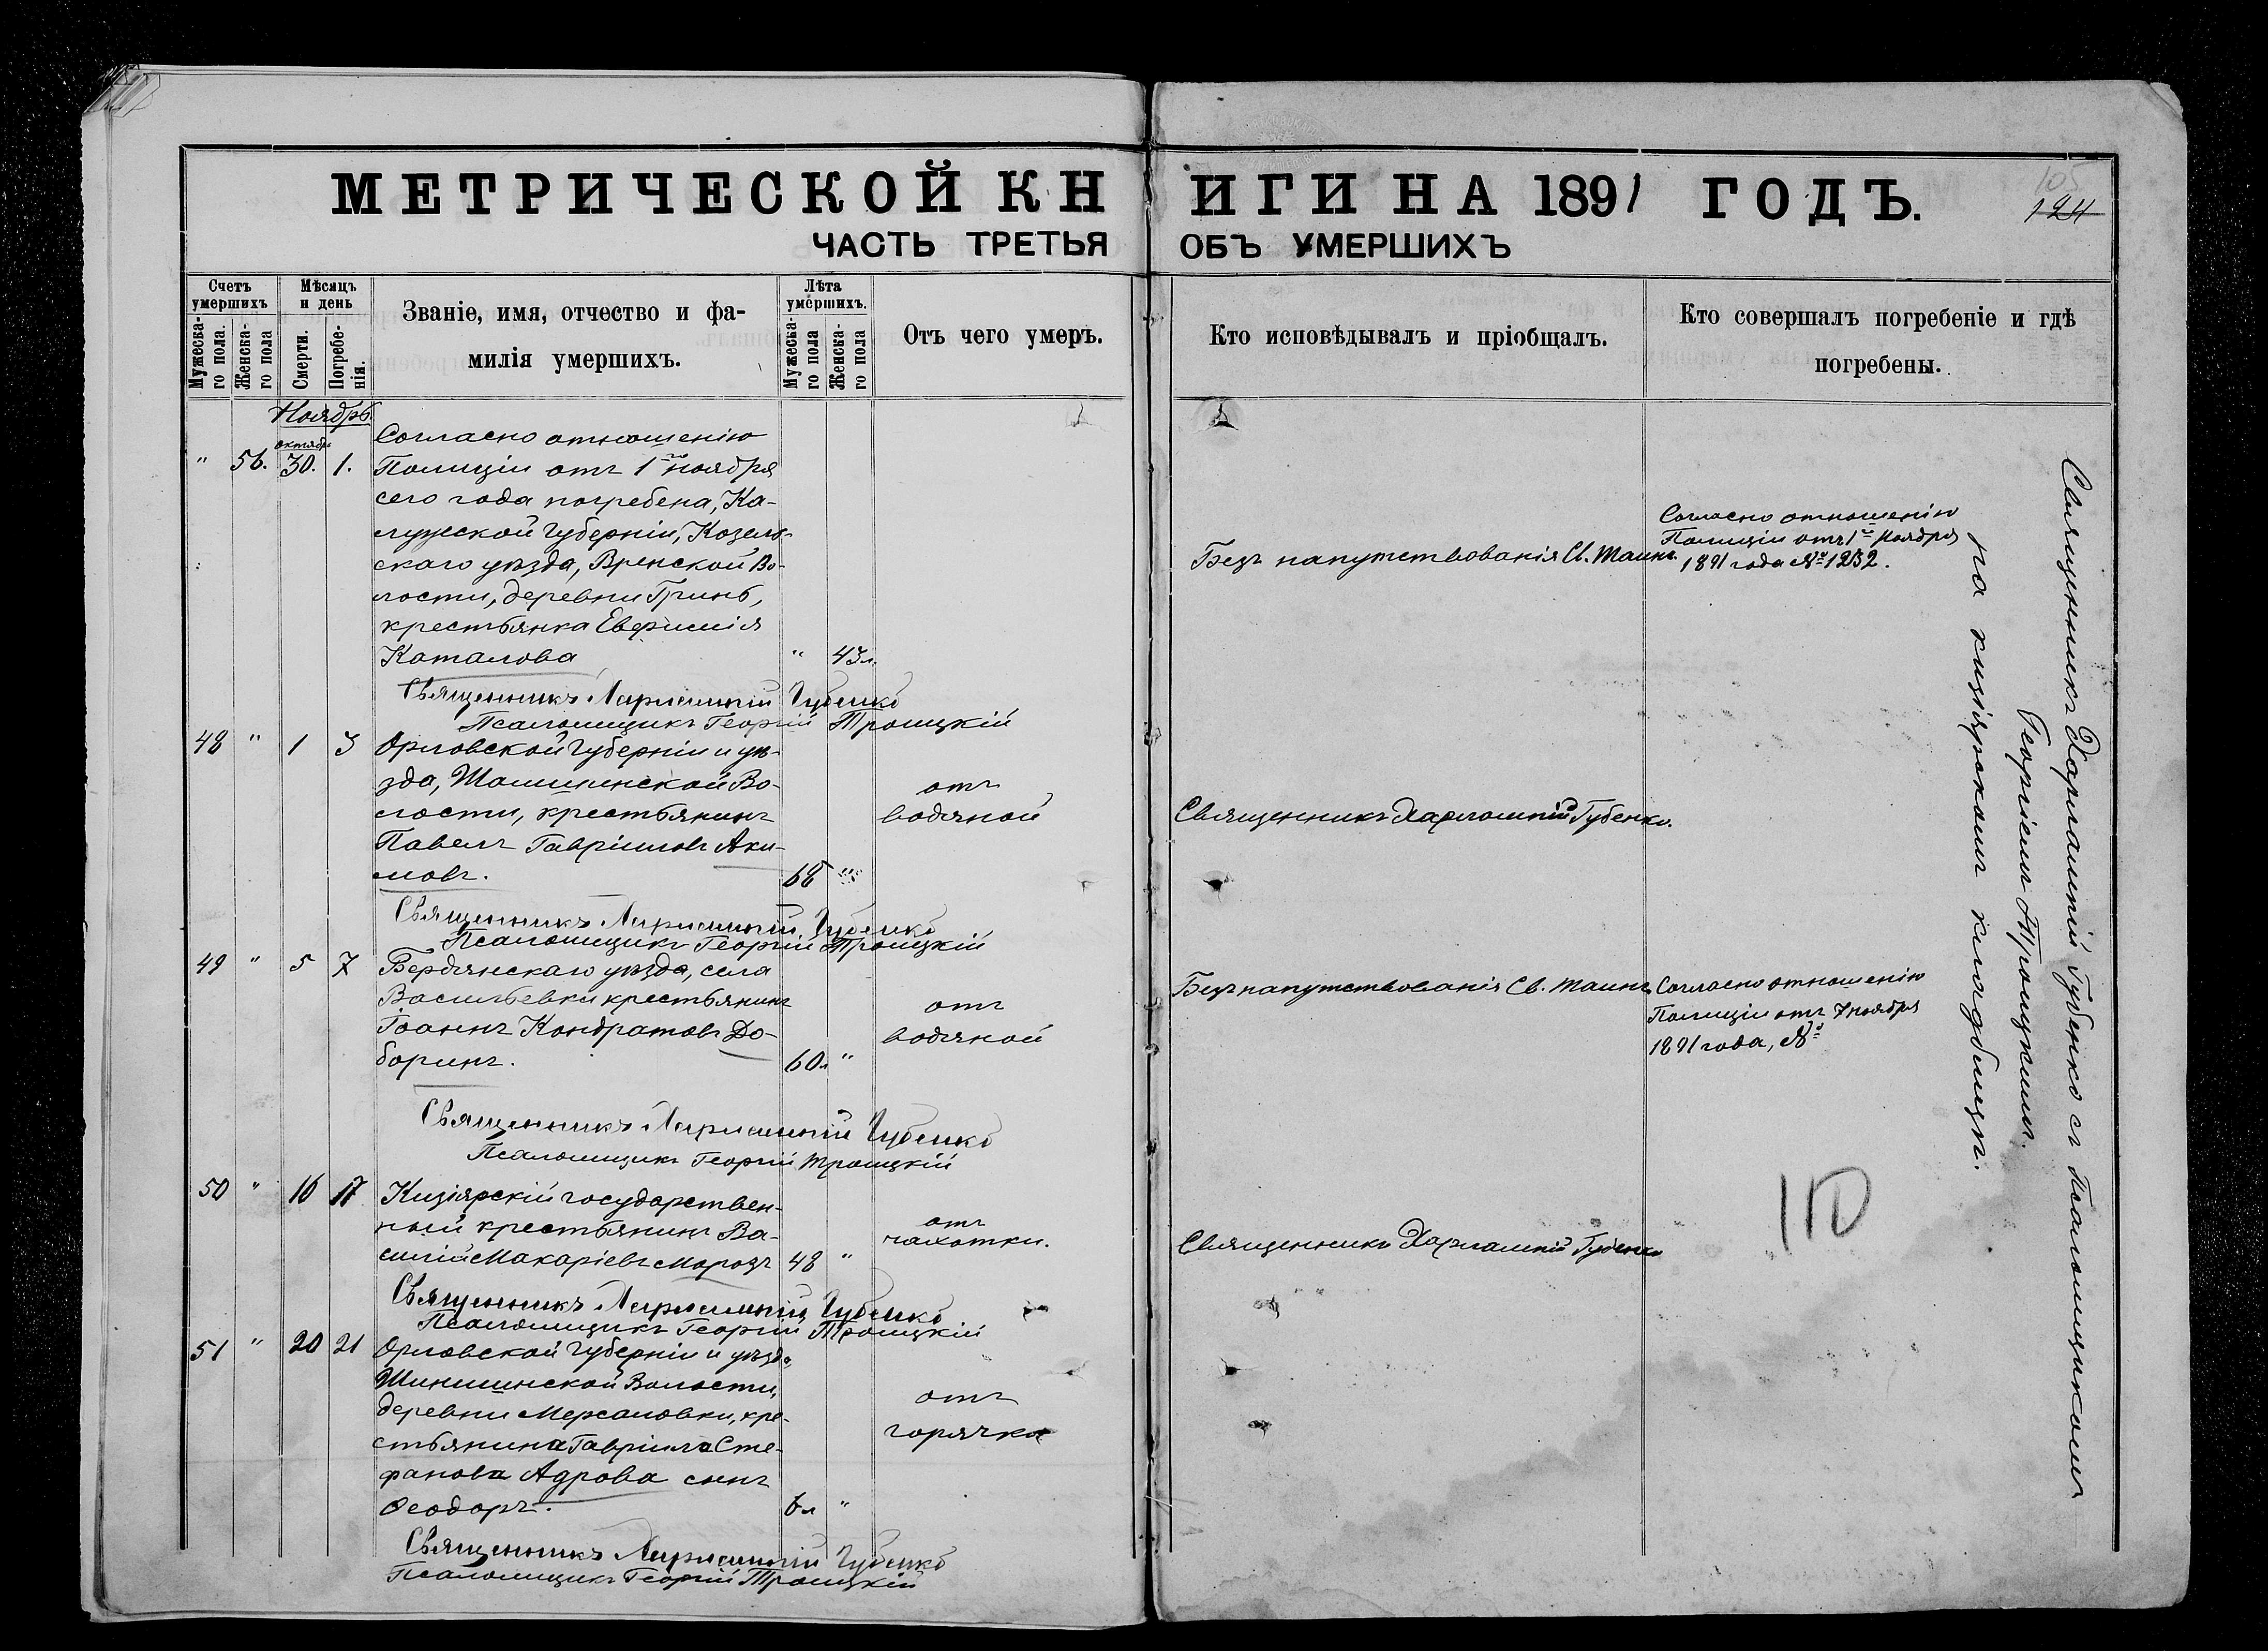 МЕТРИЧЕСКОЙ КНИГИ НА 1891 ГОДЪ.
105
124
ЧАСТЬ ТРЕТЬЯ ОБЪ УМЕРШИХЪ
Счетъ умершихъ
Мужеска-го пола.
Женска-го пола
Мѣсяцъ и день
Смерти.
Погребе-нія.
Званіе, имя, отчество и фа-
милія умершихъ.
Лѣта умершихъ.
Мужеска-го пола
Женска-го пола
Отъ чего умеръ.
Кто исповѣдывалъ и пріобщалъ.
Кто совершалъ погребеніе и гдѣ
погребены.
Ноябрь.
октября
" 56. 30. 1.
Согласно отношенію
Полиціи отъ 1го ноября
сего года погребена, Ка-
лужской Губерніи, Козель-
скаго уѣзда, Вренской Во-
лости, деревни Гринь,
крестьянка Евфимія
Каталова " 43 л.
Безъ напутствованія Св. Таинъ
Согласно отношенію
Полиціи отъ 1го Ноября
1891 года № 1252.
Священникъ Харлампій Губенко
Псаломщикъ Георгій Троицкій
48 " 1 3 Орловской Губерніи и уѣ-
зда, Шашкинской Во-
лости, крестьянинъ
Павелъ Гавріиловъ Аки-
мовъ. 68 "
отъ
водяной
Священникъ Харлампій Губенко.
Священникъ Харлампій Губенко
Псаломщикъ Георгій Троицкій
49 " 5 7 Бердянскаго уѣзда, села
Васильевки крестьянинъ
Іоаннъ Кондратовъ До-
боринъ. 60 л "
отъ
водяной
Безъ напутствованія Св. Таинъ.
Согласно отношенію
Полиціи отъ 7 ноября
1891 года, №
Священникъ Харлампій Губенко
Псаломщикъ Георгій Троицкій
50 " 16 17 Кизіярскій государствен-
ный крестьянинъ Ва-
силій Макаріевъ Морозъ 48 "
отъ
чахотки.
Священникъ Харлампій Губенко
Священникъ Харлампій Губенко
Псаломщикъ Георгій Троицкій
51 " 20 21 Орловской Губерніи и уѣзда,
Волости,
деревни кре-
стьянина Гавріила Сте-
фанова Адрова сынъ
Ѳеодоръ. 6 л "
отъ
горячки
Священникъ Харлампій Губенко
Псаломщикъ Георгій Троицкій
Священникъ Харлампій Губенко съ Псаломщикомъ
Георгіемъ Троицкимъ.
на кизіярскомъ кладбищѣ.